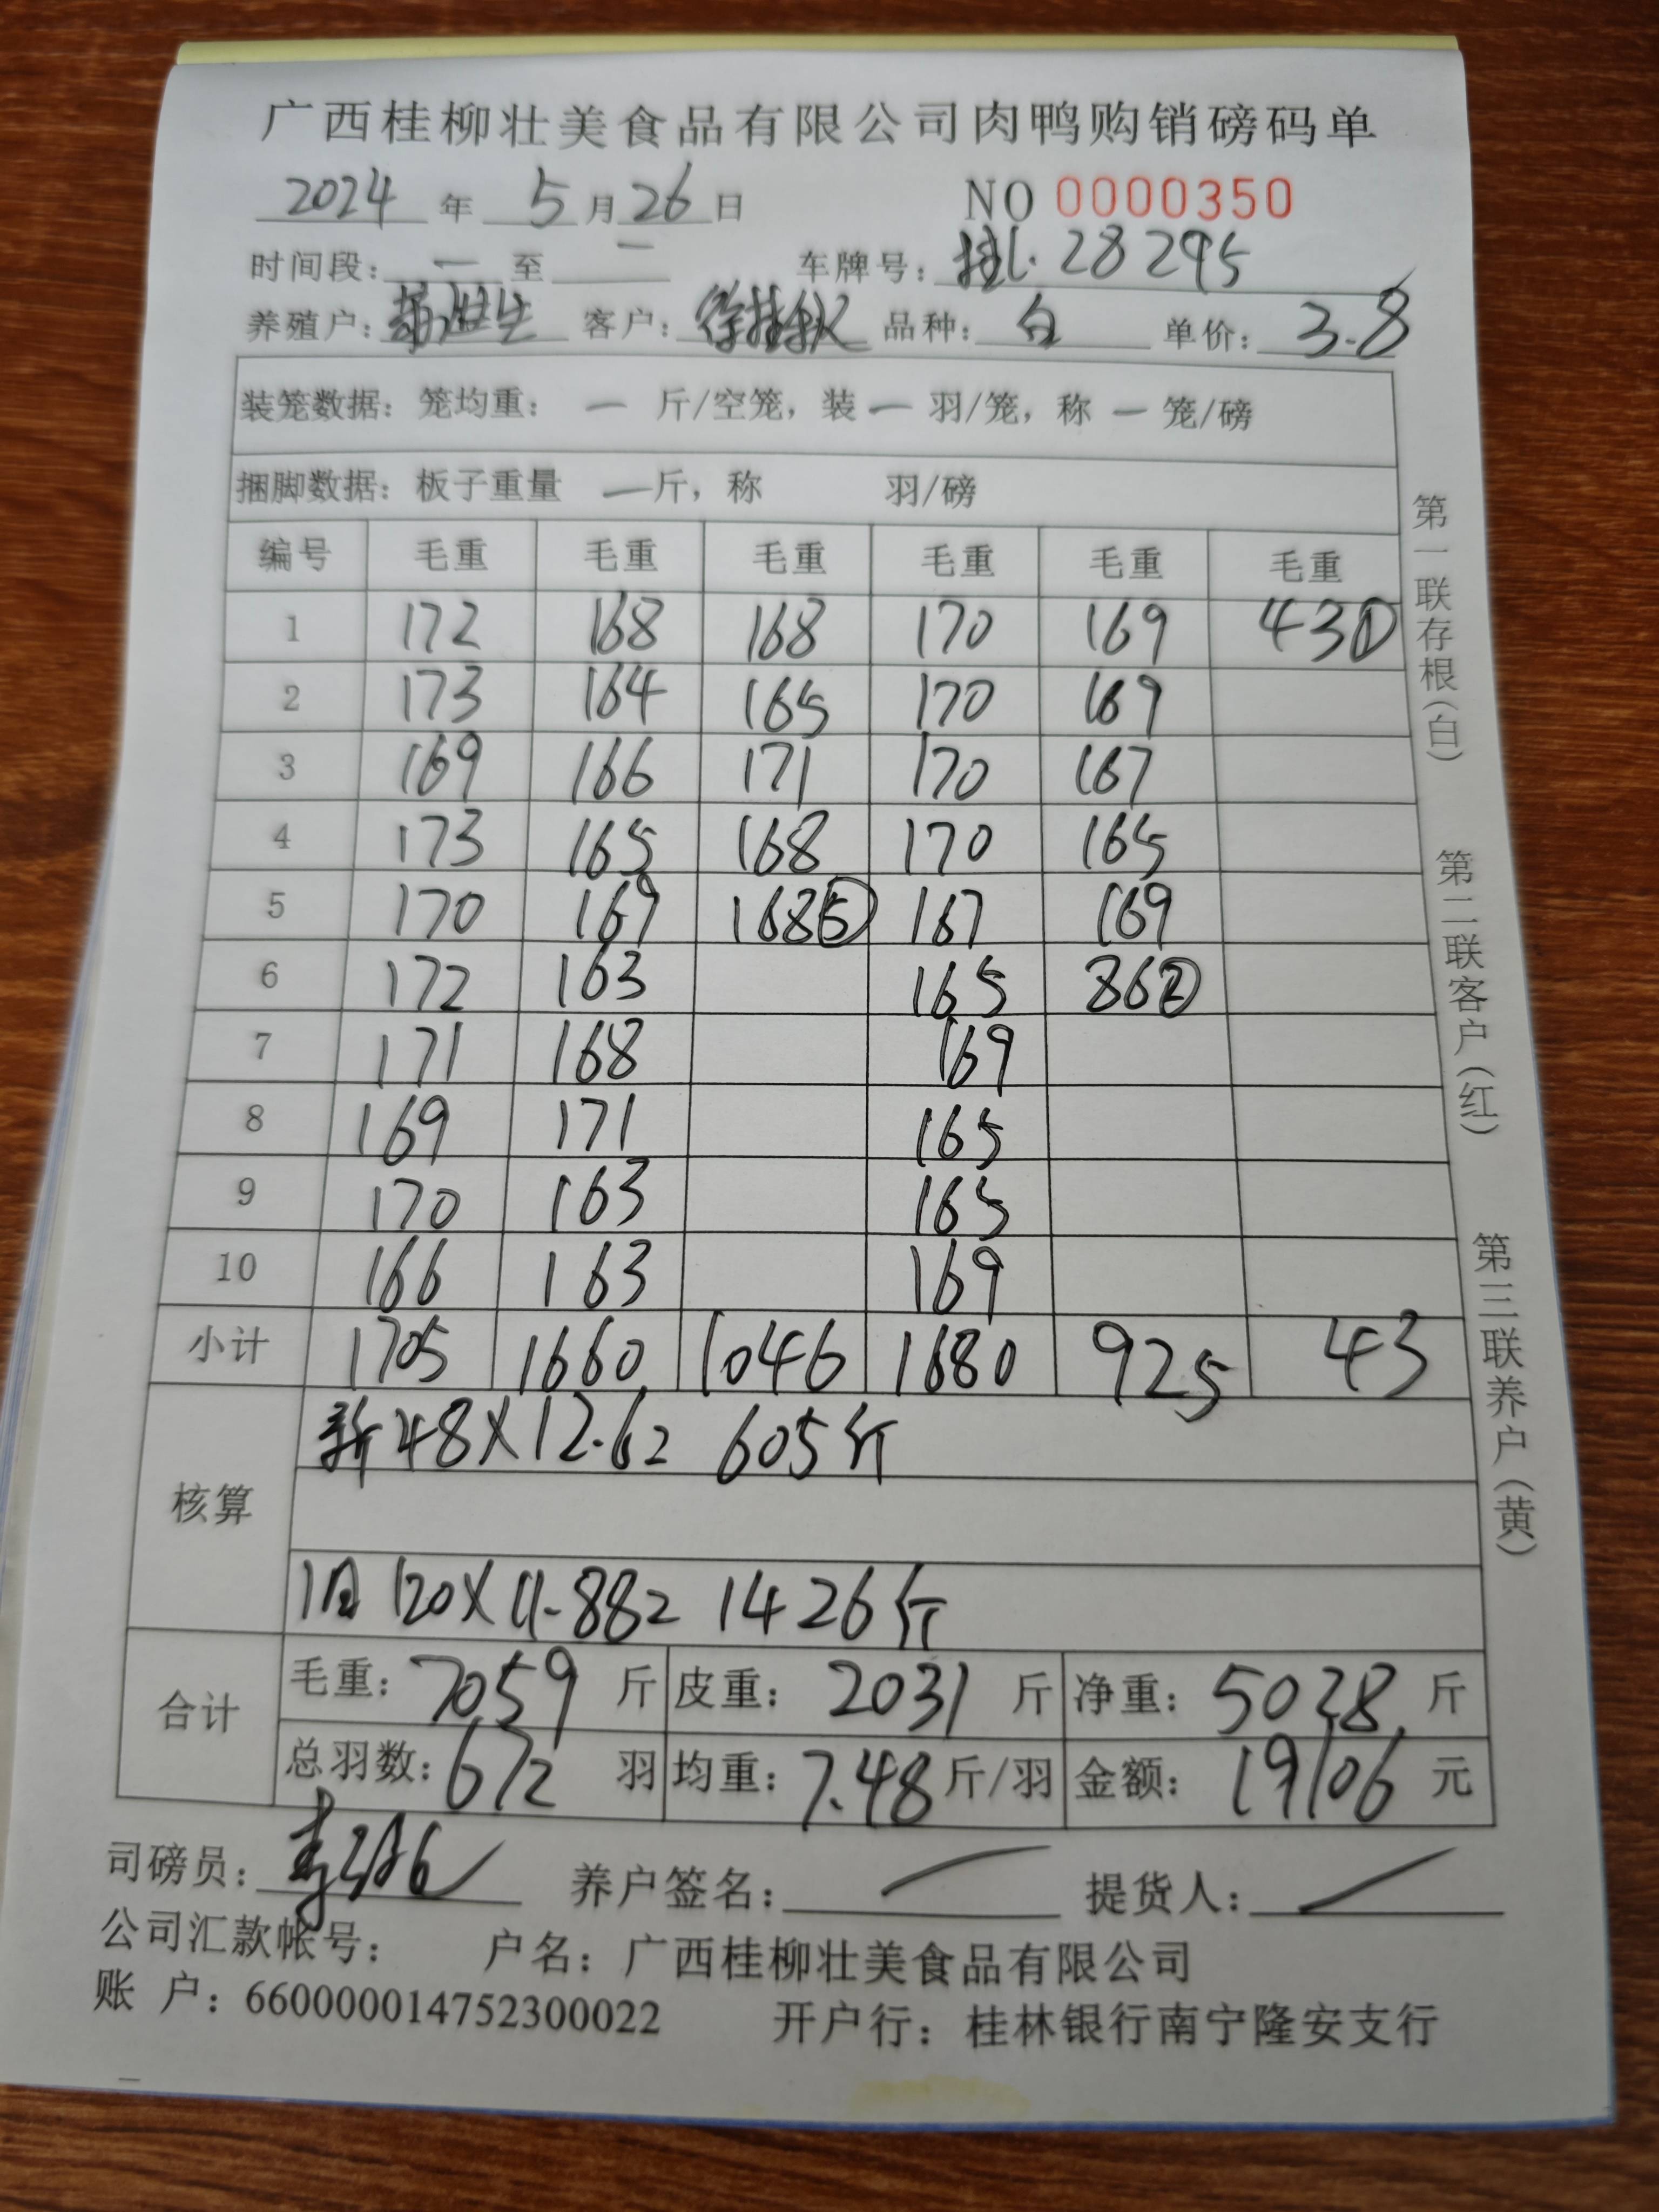 广西桂柳壮美食品有限公司肉鸭购销磅码单
2024 年 5 月 26 日 NO 0000350
时间段: — 至 — 车牌号: 桂L·28295
养殖户: 客户: 徐桂秋 品种: 白 单价: 3.8
装笼数据: 笼均重: — 斤/空笼, 装 — 羽/笼, 称 — 笼/磅
捆脚数据: 板子重量 — 斤, 称 羽/磅
编号 毛重 毛重 毛重 毛重 毛重 毛重
1 172 168 168 170 169 43①
2 173 164 165 170 169
3 169 166 171 170 167
4 173 165 168 170 165
5 170 169 168⑤ 167 169
6 172 163 165 86②
7 171 168 169
8 169 171 165
9 170 163 165
10 166 163 169
小计 1705 1660 1046 1680 925 43
核算
新 48×12.6= 605斤
旧 120×11.88= 1426斤
合计
毛重: 7059 斤 皮重: 2031 斤 净重: 5028 斤
总羽数: 672 羽 均重: 7.48 斤/羽 金额: 19106 元
司磅员: 养户签名: 提货人:
公司汇款帐号: 户名: 广西桂柳壮美食品有限公司
账 户: 660000014752300022 开户行: 桂林银行南宁隆安支行
第一联存根(白)
第二联客户(红)
第三联养户(黄)